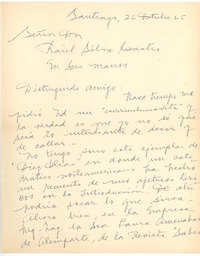 Santiago, 26 Octubre 65
Señor Don
Raúl Silva Castro
En sus manos
Distinguido amigo:
Hace tiempo me
pidió Ud un "curriculum vita" y
la verdad es que yo no sé qué
será lo interesante de decir y
de callar.
No tengo sino este ejemplar de
en donde un cate
drático norteamericano ha hecho
un remedo de mis
en la Introducción. De ahí
podría sacar lo que sirva.
Ahora bien, en la Empresa
Zig-Zag la Sra Laura Amenábar
de Alemparte, de la Revista